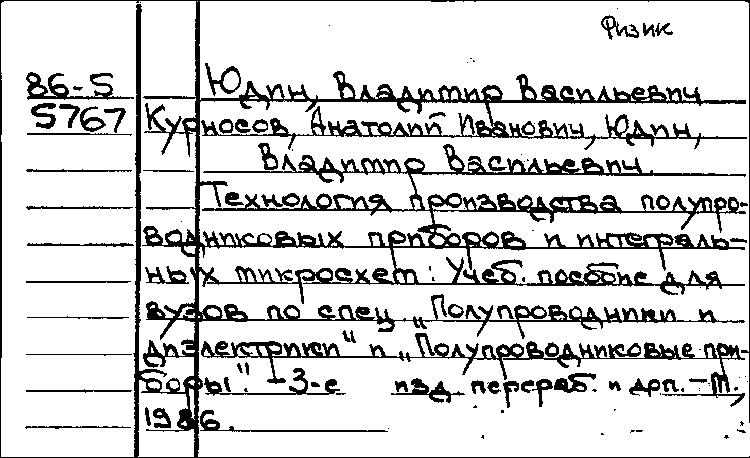 Физик
86-5 Юдин, Владимир Васильевич
5767 Курносов, Анатолий Иванович, Юдин,
Владимир Васильевич.
Технология производства полупро-
водниковых приборов и интеграль-
ных микросхем: Учеб. пособие для
вузов по спец. „Полупроводники и
диэлектрики" и „Полупроводниковые при-
боры". - 3-е изд. перераб. и доп. - М.,
1986.